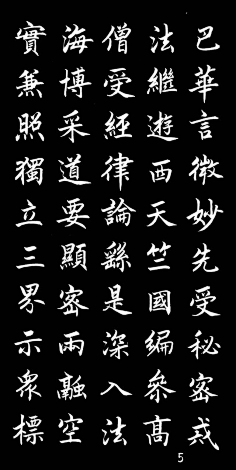 巴華言微妙先受秘密戎
法繼遊西天竺國編參高
僧受經律論繇是深入法
海博采道要顯密兩融空
實兼照獨立三界示衆標
5